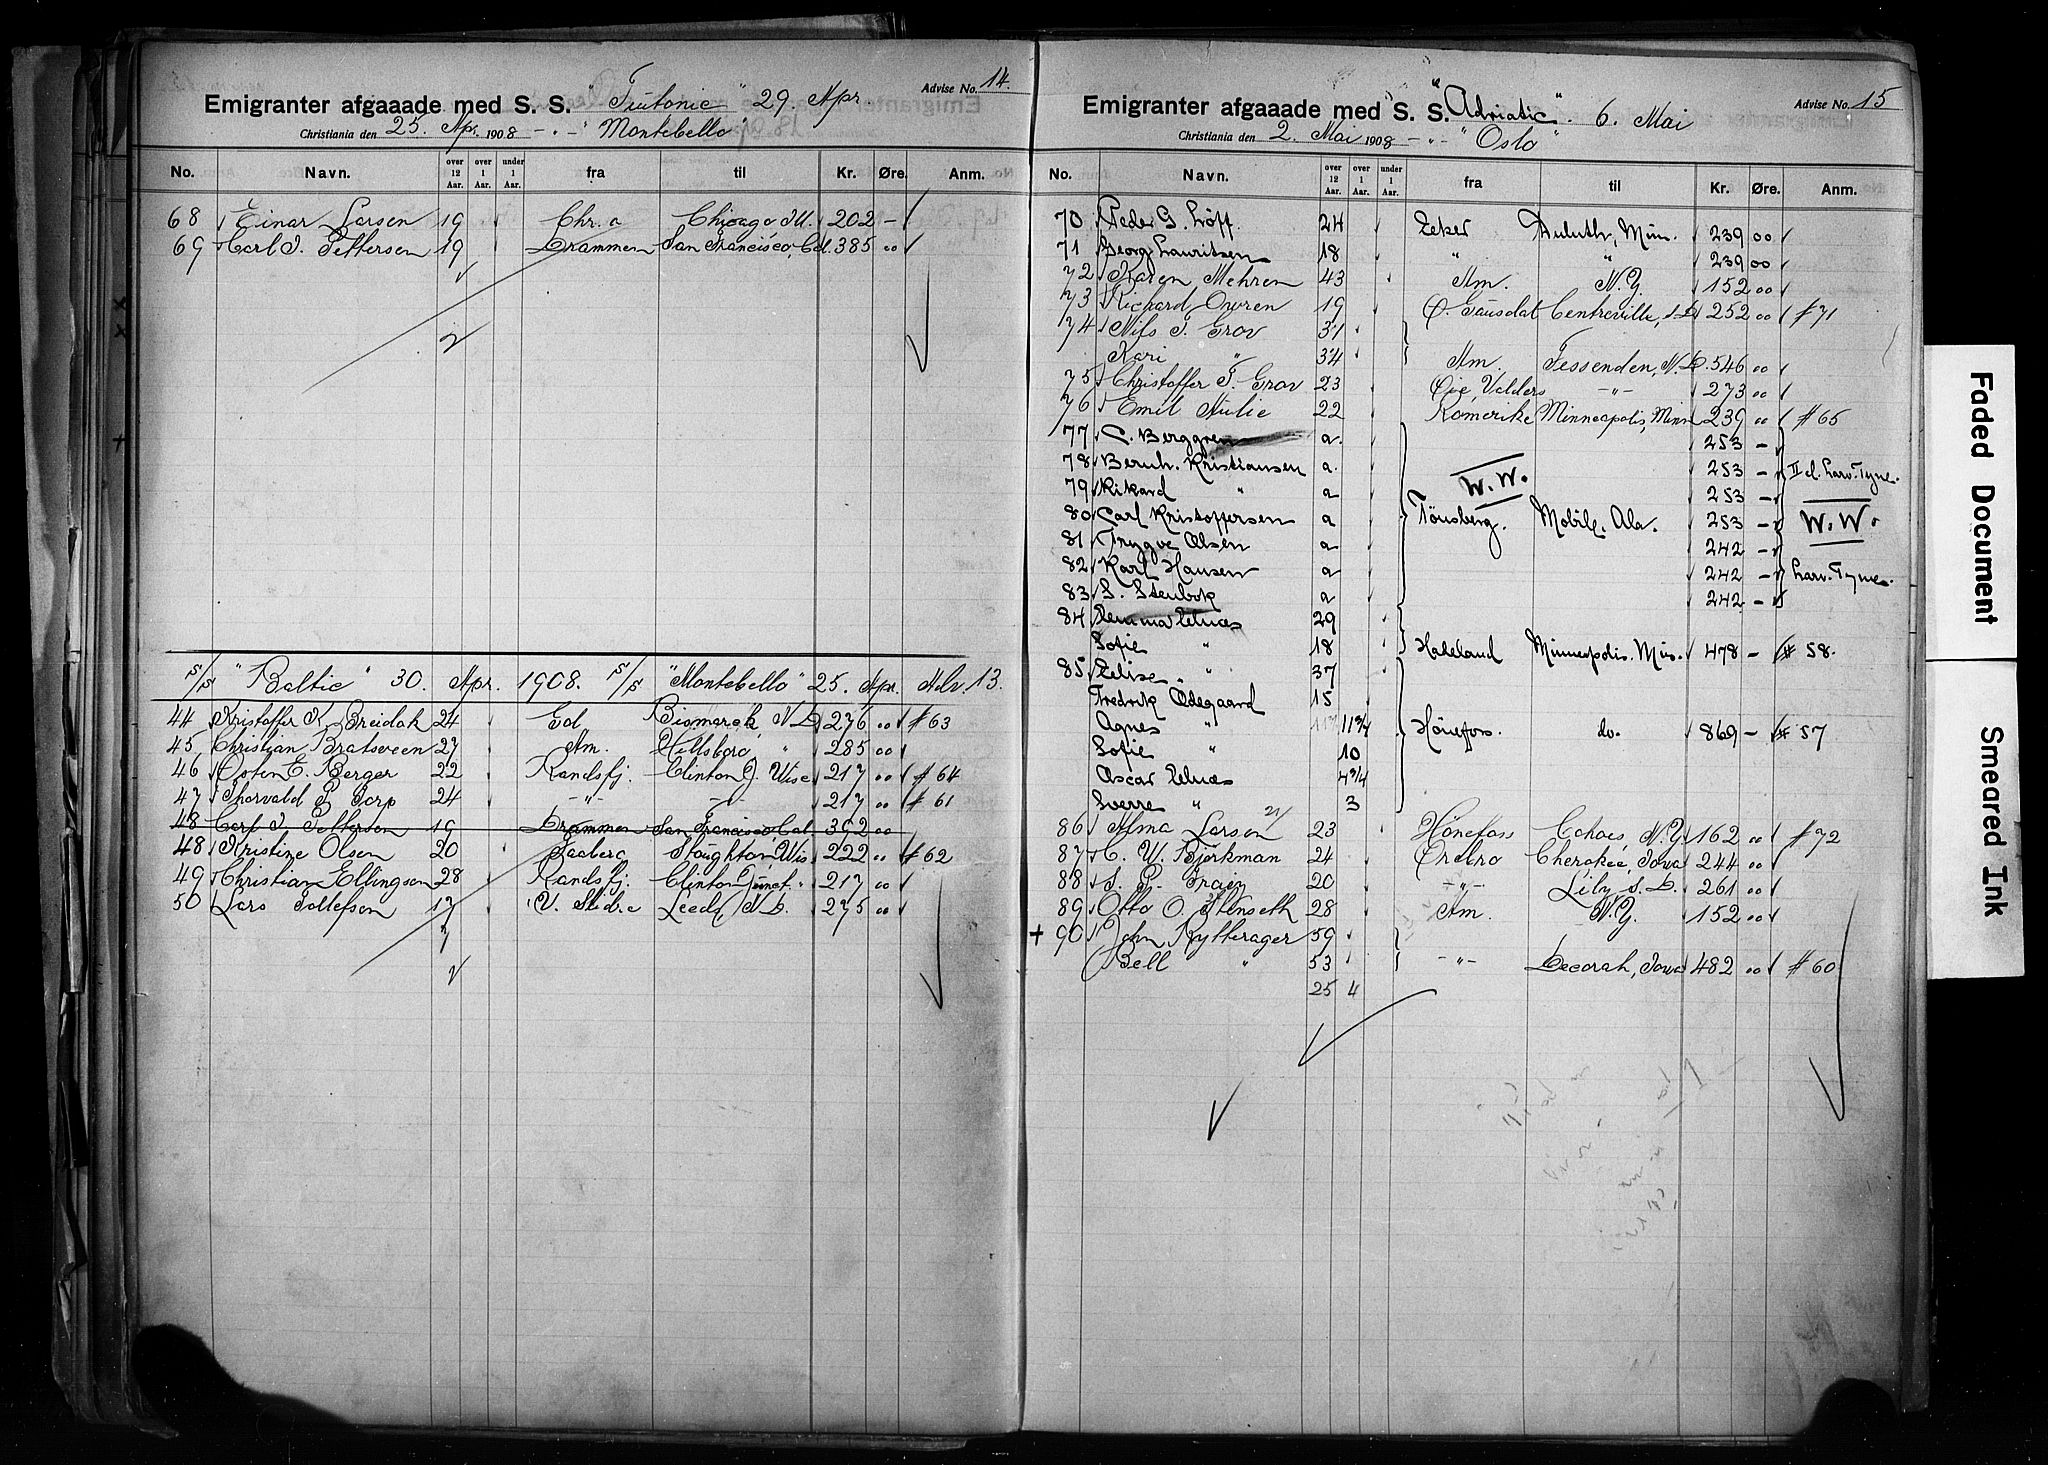 Advise No. 14.
Emigranter afgaaade med S. S. Teutonic" 29. Apr
Christiania den 25. Ap. 1908 - " - "Montebello"
No. Navn. over 12 Aar. over 1 Aar. under 1 Aar. fra til Kr. Øre. Anm.
68 Einar Larsen 19 Chr.a Chicago Ill. 202 -
69 Carl J. Pettersen 19 Drammen San Francisco, Cal. 385 00
2
S/S "Baltic" 30. Apr. 1908. S/S "Montebello" 25. Apr. Adv. 13.
44 Kristoffer K. Breidak 24 Gol Bismarck, N. D. 276 00 # 63
45 Christian Bratsveen 27 Am. Hillsboro, " 285 00
46 Osten E. Berger 22 Randsfj. Clinton J. Wisc 217 00 # 64
47 Thorvald P. Torp 24 - " - - " - 217 00 # 61
48 Carl J. Pettersen 19 Drammen San Francisco Cal 392 00
48 Kristine Olsen 20 Stoughton Wis 222 00 # 62
49 Christian Ellingson 28 Randsfj. Clinton Junct. " 217 00
50 Lars Tollefsen 17 V. Slidre Leeds N. D. 275 00
7
Advise No. 15
Emigranter afgaaade med S. S. "Adriatic". 6. Mai
Christiania den 2. Mai 1908 - " - "Oslo"
No. Navn. over 12 Aar. over 1 Aar. under 1 Aar. fra til Kr. Øre. Anm.
70 Peder G. Løff. 24 Eeker Duluth, Min. 239 00
71 Georg Lauritsen 18 " " 239 00
72 Karen Mehren 43 Am. N.Y. 152 00
73 Richard Owren 19 Ø. Gausdal Centreville, S.D. 252 00 # 71
74 Nils T. Grov 31
Kari " 34 Am. Fessenden, N. D. 546 00
75 Christoffer T. Grov 23 Øie, Valders - " - 273 00
76 Emil Julie 22 Romerike Minneapolis, Minn 239 00 # 65
77 C. Berggren a. 253 -
78 Bernh. Kristiansen a. 253 - II cl. Larv. Tyne.
79 Rikard " a W. W. 253 -
80 Carl Kristoffersen a Tönsberg. Mobile. Ala. 253 - W. W.
81 Trygve Olsen a 242 -
82 Karl Hansen a 242 - Larv. Tyne.
83 S. Stenbok a 242 -
84 Emma Elnæs 29
Sofie " 18 Hadeland Minneapolis. Min. 478 - # 58.
85 Elise " 37
Fredrik Ødegaard 15
Agnes " 11 3/4 Hönefoss. do. 869 - # 57
Sofie " 10
Oscar Elnæs 4 3/4
Sverre " 3
86 Alma Larsen 21/ 23 Hönefoss Cohoes, N.Y. 162 00 # 72
87 C. W. Björkman 24 Örebro Cherokee, Iowa 244 00
88 S. P. Train 20 - " - Lily S. D. 261 00
89 Otto O. Stenseth 28 Am. N.Y. 152 00
+ 90 John Rytterager 59
Bell " 53 - " - Decorah, Iowa 482 00 # 60
25 4
Faded Document
Smeared Ink